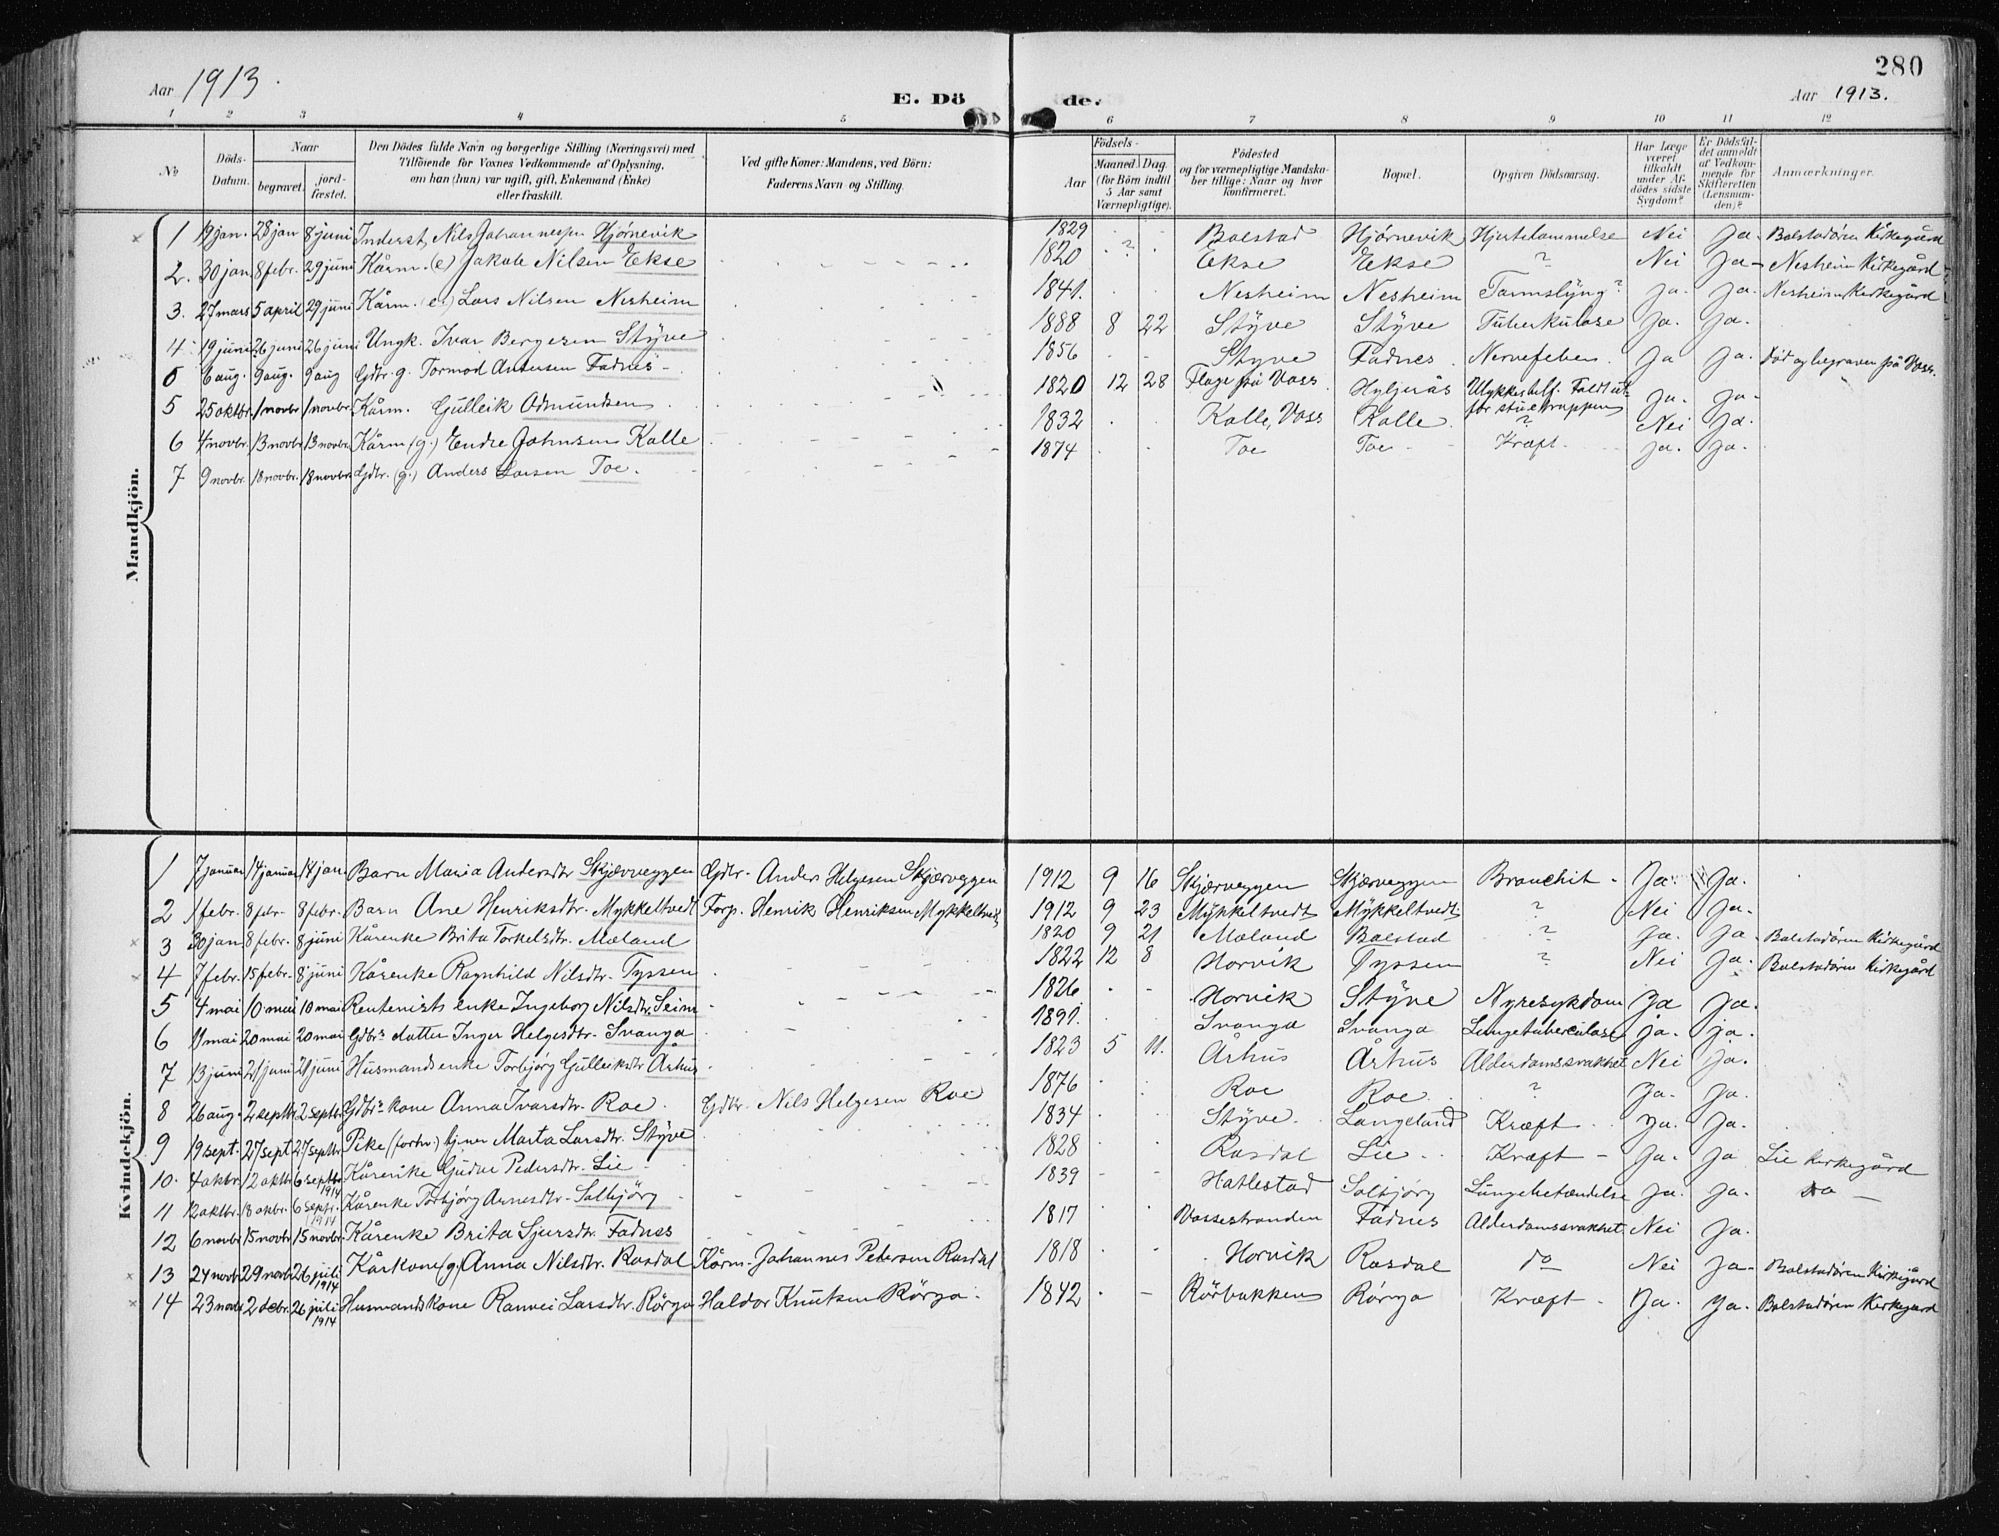 280
Aar 1913.
E. Döde.
Aar 1913.
1 2 3 4 5 6 7 8 9 10 11 12
№
Döds-Datum.
Naar
begravet.
jord-fæstet.
Den Dödes fulde Navn og borgerlige Stilling (Næringsvei) med
Tilföiende for Voxnes Vedkommende af Oplysning,
om han (hun) var ugift, gift, Enkemand (Enke)
eller fraskilt.
Ved gifte Koner: Mandens, ved Börn:
Faderens Navn og Stilling.
Födsels-
Aar
Maaned. Dag.
(for Börn indtil
5 Aar samt
Værnepligtige).
Födested
og for værnepligtige Mandska-
ber tillige: Naar og hvor
konfirmeret.
Bopæl.
Opgiven Dödsaarsag.
Har Læge
været
tilkaldt
under Af-
dödes sidste
Sygdom?
Er Dödsfal-
det anmeldt
af Vedkom-
mende for
Skifteretten
(Lensman-
den)?
Anmærkninger.
Mandkjön.
1 19 jan. 28 jan 8 juni Inderst Nils Johannessen Hjørnevik 1829 Bolstad Hjørnevik Hjertelammelse Nei Ja Bolstadøren Kirkegård
2. 30 jan 8 febr. 29 juni Kårm. (e) Jakob Nilsen Ekse 1820 ? Ekse Ekse ? Nei Ja Nesheim Kirkegård
3. 27 mars 5 april 29 juni Kårm. (e) Lars Nilsen Nesheim 1841. Nesheim Nesheim Tarmslyng? Ja. Ja. Nesheim Kirkegård
4 19 juni 26 juni 26 juni Ungk. Ivar Bergesen Styve 1888 8 22 Styve Styve Tuberkulose Ja. Ja.
0 6 aug. 9 aug. 9 aug Gdbr. g. Tormod Andersen Fadnes 1856 Styve Fadnes Nervefeber. Ja Ja. Død og begraven på Voss.
5 25 oktbr. 1 novbr. 1 novbr. Kårm. Gulleik Odmundsen 1820 12 28 Flage på Voss Hyljerås Ulykkestilf. Faldt ut for stuetrappen Ja. Ja.
6 4 novbr. 13 novbr. 13 novbr. Kårm (g.) Endre Johnsen Kolle 1832 Kolle, Voss Kolle ? Nei Ja.
7 9 novbr. 18 novbr. 18 novbr. Gdbr. (g.) Anders Larsen Toe. 1874 Toe Toe Kræft Ja. Ja.
Kvindekjön.
1 7 januar 14 januar 14 jan. Barn Maria Andersdtr Skjærveggen Gdbr. Anders Helgesen Skjærveggen 1912 9 16 Skjærveggen Skjærveggen Bronchit Ja. Ja.
2 1 febr. 8 febr. 8 febr. Barn Ane Henriksdtr. Mykkeltvedt Forp. Henrik Henriksen Mykkeltvedt 1912 9 23 Mykkeltvedt Mykkeltvedt ? Nei Ja.
3 30 jan 8 febr. 8 juni Kårenke Brita Torkelsdtr. Mæland 1820 9 21 Mæland Bolstad ? Ja. Ja Bolstadøren Kirkegård
4 7 febr. 15 febr. 8 juni Kårenke Ragnhild Nilsdtr. Tyssen 1822 12 8 Horvik Tyssen ? Nei Ja. Bolstadøren Kirkegård
5 4 mai 10 mai 10 mai Rentenists enke Ingeborg Nilsdtr. Seim 1826 Horvik Styve Nyresykdom Ja Ja.
6 11 mai 20 mai 20 mai Gdbrs datter Inger Helgesdtr. Svanga 1891. Svanga Svanga Lungetuberculose Ja. Ja.
7 13 juni 21 juni 21 juni Husmandsenke Torbjørg Gulleiksdtr Århus 1823 5 11. Århus Århus Alderdomssvakhet Nei Ja.
8 26 aug. 2 septbr 2 septbr Gdbrs kone Anna Ivarsdtr. Roe. Gdbr. Nils Helgesen Roe 1876 Roe Roe. ? Ja. Ja.
9 19 sept. 27 sept 27 septbr Pike (forhv.) tjener Marta Larsdtr. Styve 1834 Styve. Langeland Kræft Ja. Ja.
10. 4 okbr. 12 oktbr 6 septbr 1914 Kårenke Gudve Pedersdtr. Lie 1828 Rasdal Lie Kræft Ja. Ja Lie kirkegård
11 12 oktbr. 18 okbr. 6 septr. 1914 Kårenke Torbjørg Arnesdtr. Solbjørg 1839 Hatlestad Solbjørg Lungebetændelse Ja. Ja. Do
12 6 novbr 15 novbr 15 novbr. Kårenke Brita Sjursdtr. Fadnes 1817 Vossestranden Fadnes Alderdomssvakhet Nei Ja.
13 24 novbr 29 novbr 26 juli 1914 Kårkone (g) Anna Nilsdtr. Rasdal Kårm. Johannes Petersen Rasdal 1818 Horvik Rasdal do Nei Ja Bolstadøren Kirkegård
14 23 novbr 2 debr. 26 juli 1914 Husmandskone Ranvei Larsdtr. Rørgo Haldor Knutsen Rørgo 1842 Rørbakken Rørgo Kræft Ja. Ja. Bolstadøren Kirkegård